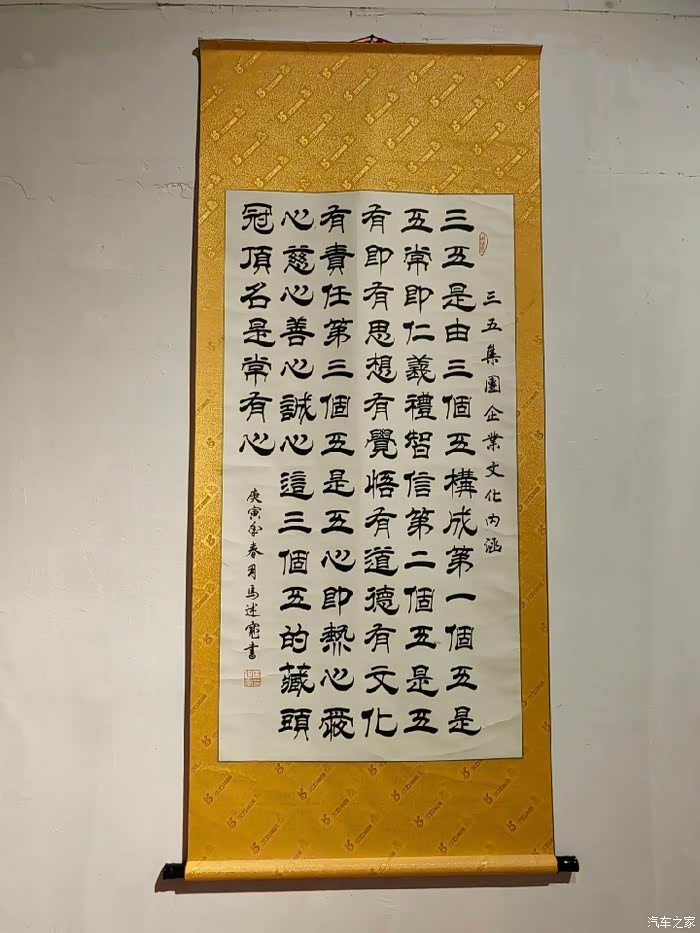 三五集團企業文化内涵
三五是由三個五構成第一個五是
五常即仁義禮智信第二個五是五
有即有思想有覺悟有道德有文化
有責任第三個五是五心即熱心愛
心慈心善心誠心這三個五的藏頭
冠頂名是常有心
庚寅年春月馬述寬書
汽车之家